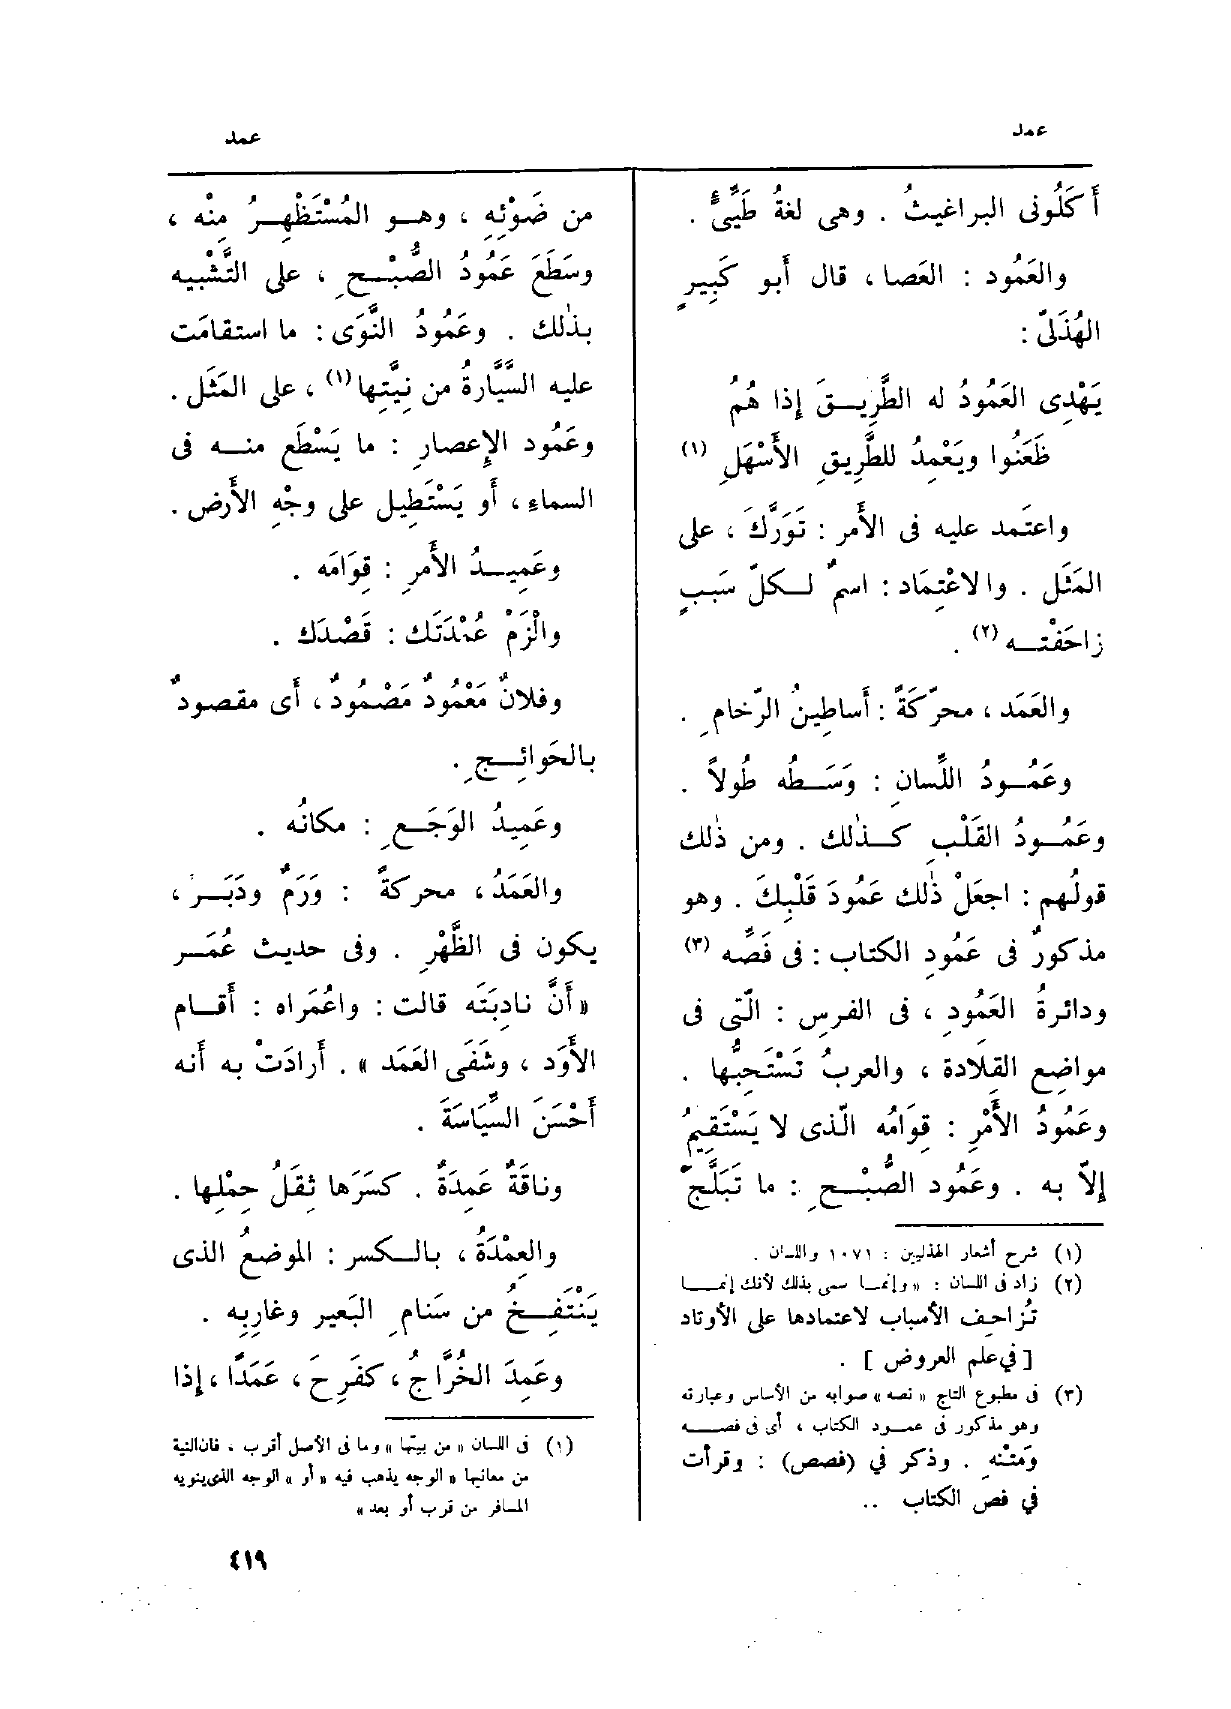 عمد
عمد
أَكَلُونى البراغيثُ . وهى لغةُ طَيِّئٍ .
والعَمُود : العَصا ، قال أَبو كَبِيرٍ
الهُذَلىّ :
يَهْدِى العَمُودُ له الطَّرِيقَ إِذا هُمُ
ظَعَنُوا ويَعْمِدُ للطَّرِيقِ الأَسْهَلِ (١)
واعتَمد عليه فى الأَمر : تَوَرَّكَ ، على
المَثَل . والاعْتِمَاد : اسمٌ لكلّ سَببٍ
زاحَفْته (٢) .
والعَمَد ، محرّكَةً : أَساطِينُ الرّخامِ .
وعَمُودُ اللِّسانِ : وَسَطُه طُولاً .
وعَمُودُ القَلْبِ كذٰلك . ومن ذٰلك
قولُهم : اجعَلْ ذٰلك عَمُودَ قَلْبِكَ . وهو
مذكورٌ فى عَمُودِ الكتاب : فى فَصِّه (٣)
ودائرةُ العَمُودِ ، فى الفرسِ : الّتى فى
مواضِع القِلادة ، والعربُ تَسْتَحِبُّها .
وعَمُودُ الأَمْرِ : قِوَامُه الّذى لا يَسْتَقِيمُ
إِلاّ به . وعَمُود الصُّبْحِ : ما تَبَلَّجَ
(١) شرح أشعار الهذليين : ١٠٧١ واللسان .
(٢) زاد فى اللسان : « وإنما سمى بذلك لأنك إنما
تُزاحِف الأسباب لاعتمادها على الأوتاد
[ في علم العروض ] .
(٣) فى مطبوع التاج « نصه » صوابه من الأساس وعبارته
وهو مذكور فى عمود الكتاب ، أى فى فصه
وَمتْنْهِ . وذكر في (فصص) : وقرأت
في فص الكتاب ..
من ضَوْئِهِ ، وهو المُسْتَظْهِرُ مِنْه ،
وسَطَعَ عَمُودُ الصُّبْحِ ، على التَّشْبِيه
بذٰلك . وعَمُودُ النَّوَى : ما استقامَت
عليه السَّيَّارةُ من نِيَّتِها (١) ، على المَثَل .
وعَمُود الإِعصارِ : ما يَسْطَع منه فى
السماءِ ، أَو يَسْتَطِيل على وجْهِ الأَرض .
وعَمِيدُ الأَمرِ : قِوَامَه .
والْزَمْ عُمْدَتَك : قَصْدَك .
وفلانٌ مَعْمُودٌ مَصْمُودٌ ، أَى مقصودٌ
بالحَوائِجِ .
وعَمِيدُ الوَجَعِ : مكانُه .
والعَمَدُ ، محركةً : وَرَمٌ ودَبَر ،
يكون فى الظَّهْرِ . وفى حديث عُمَر
« أَنَّ نادِبَتَه قالت : واعُمَراه : أَقام
الأَوَد ، وشَفَى العَمَد » . أَرادَتْ به أَنه
أَحْسَنَ السِّيَاسَةَ .
وناقَةٌ عَمِدَةٌ . كسَرَها ثِقَلُ حِمْلِها .
والعِمْدَةُ ، بالكسر : الموضعُ الذى
يَنْتَفِخُ من سَنامِ البَعير وغارِبِه .
وعَمِدَ الخُرَّاجُ ، كفَرِحَ ، عَمَدًا ، إِذا
(١) فى اللسان « من بيتها » وما فى الأصل أقرب ، فان النية
من معانيها « الوجه يذهب فيه « أو » الوجه الذى ينويه
المسافر من قرب أو بعد »
٤١٩